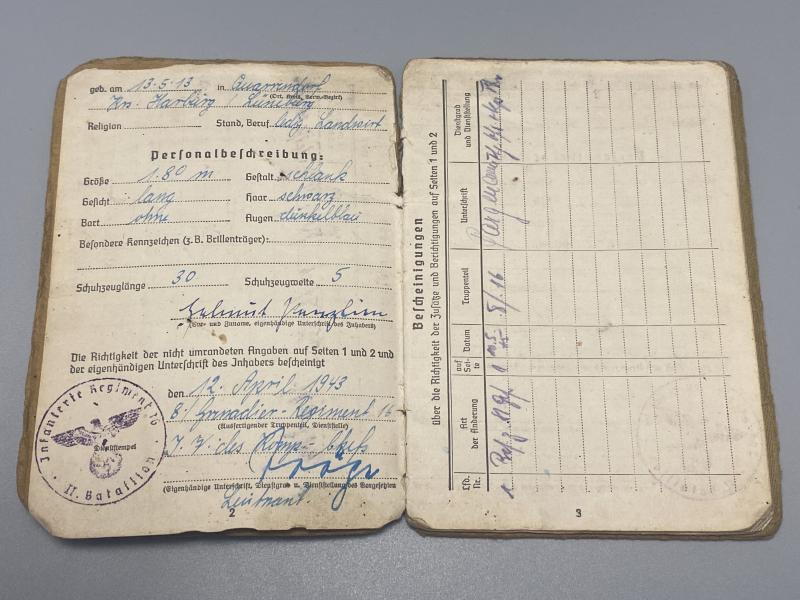 geb. am 13.5.13 in Quarrendorf
(Ort, Kreis, Verw.-Bezirk)
Krs. Harburg / Lüneburg
Religion Stand, Beruf Landwirt
Personalbeschreibung:
Größe 1.80 m Gestalt schlank
Gesicht lang Haar schwarz
Bart ohne Augen dunkelblau
Besondere Kennzeichen (z.B. Brillenträger):
Schuhzeuglänge 30 Schuhzeugweite 5
Helmut
(Vor- und Zuname, eigenhändige Unterschrift des Inhabers)
Die Richtigkeit der nicht umrandeten Angaben auf Seiten 1 und 2 und
der eigenhändigen Unterschrift des Inhabers bescheinigt
den 12. April 1943
8./Grenadier-Regiment 16
(Ausfertigender Truppenteil, Dienststelle)
Infanterie Regiment 16
Dienststempel
II. Bataillon
J. V. des Komp.-
(Eigenhändige Unterschrift, Dienstgrad u. Dienststellung des Vorgesetzten)
Leutnant.
2
Bescheinigungen
über die Richtigkeit der Zusätze und Berichtigungen auf Seiten 1 und 2
Lfd. Nr.
Art der Änderung
auf Seite
Datum
Truppenteil
Unterschrift
Dienstgrad und Dienststellung
1 1 8./. 16
3